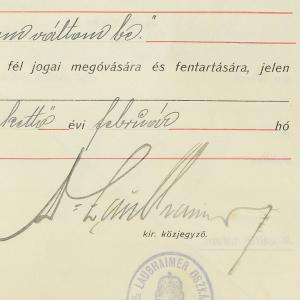 váltom be."
fél jogai megóvására és fentartására, jelen
kettő évi február hó
Dr Laubhaimer
kir. közjegyző.
LAUBHAIMER OSZKÁ